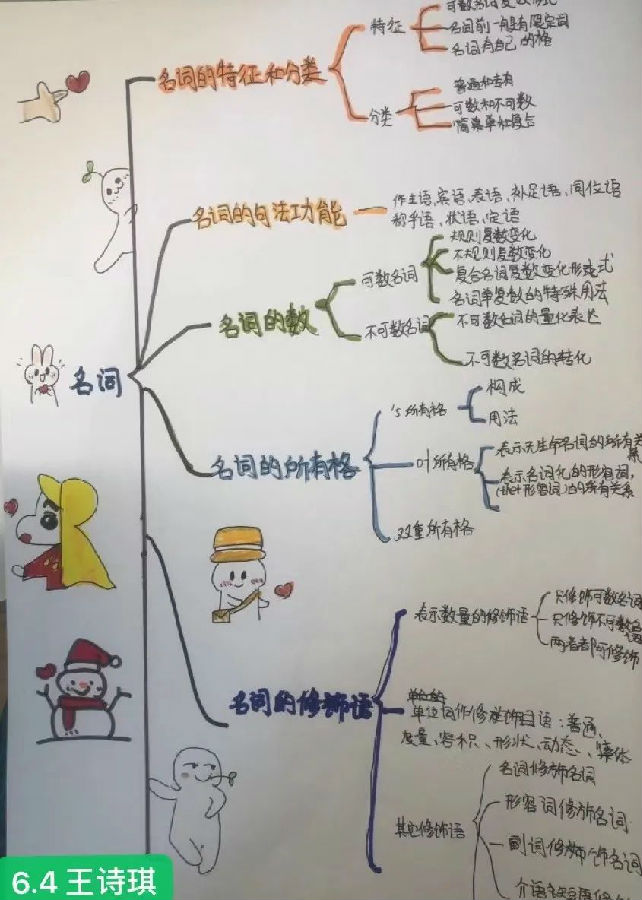 名词
名词的特征和分类
特征
名词前一般有限定词
名词有自己的格
分类
普通和专有
可数和不可数
简单和复合
名词的句法功能
作主语、宾语、表语、补足语、同位语
称呼语、状语、定语
名词的数
可数名词
规则复数变化
不规则复数变化
复合名词复数变化形式
名词单复数的特殊用法
不可数名词
不可数名词的量化表达
不可数名词的转化
名词的所有格
's所有格
构成
用法
of所有格
表示无生命名词的所有关系
表示名词化的形容词,
(the+形容词)的所有关系
双重所有格
名词的修饰语
表示数量的修饰语
只修饰可数名词
只修饰不可数名词
两者都可修饰
单位词作修饰语:普通、
度量、容积、形状、动态、集体
其他修饰语
名词修饰名词
形容词修饰名词
副词修饰名词
6.4 王诗琪